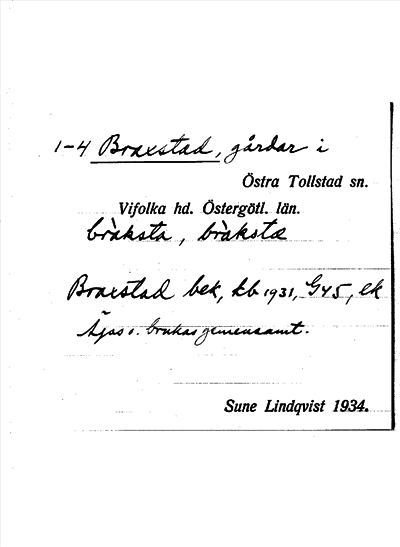 1-4 Braxstad, gårdar i
Östra Tollstad sn.
Vifolka hd. Östergötl. län.
bràksta, bràkstæ
Braxstad bek, kb 1931, G45, ek
Äges o. brukas gemensamt.
Sune Lindqvist 1934.